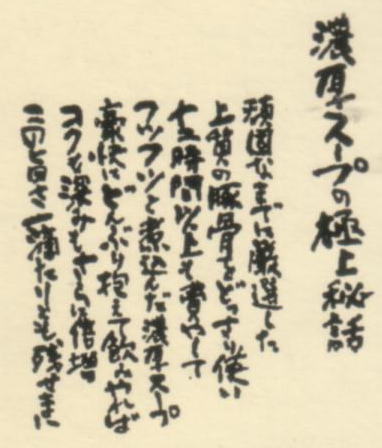 濃厚スープの極上秘話
頑固なまでに厳選した
上質の豚骨をどっさり使い
十五時間以上も費やして
フツフツと煮込んだ濃厚スープ
豪快にどんぶり抱えて飲みやれば
コクも深みもさらに倍増
この旨さ一滴たりとも残せまい